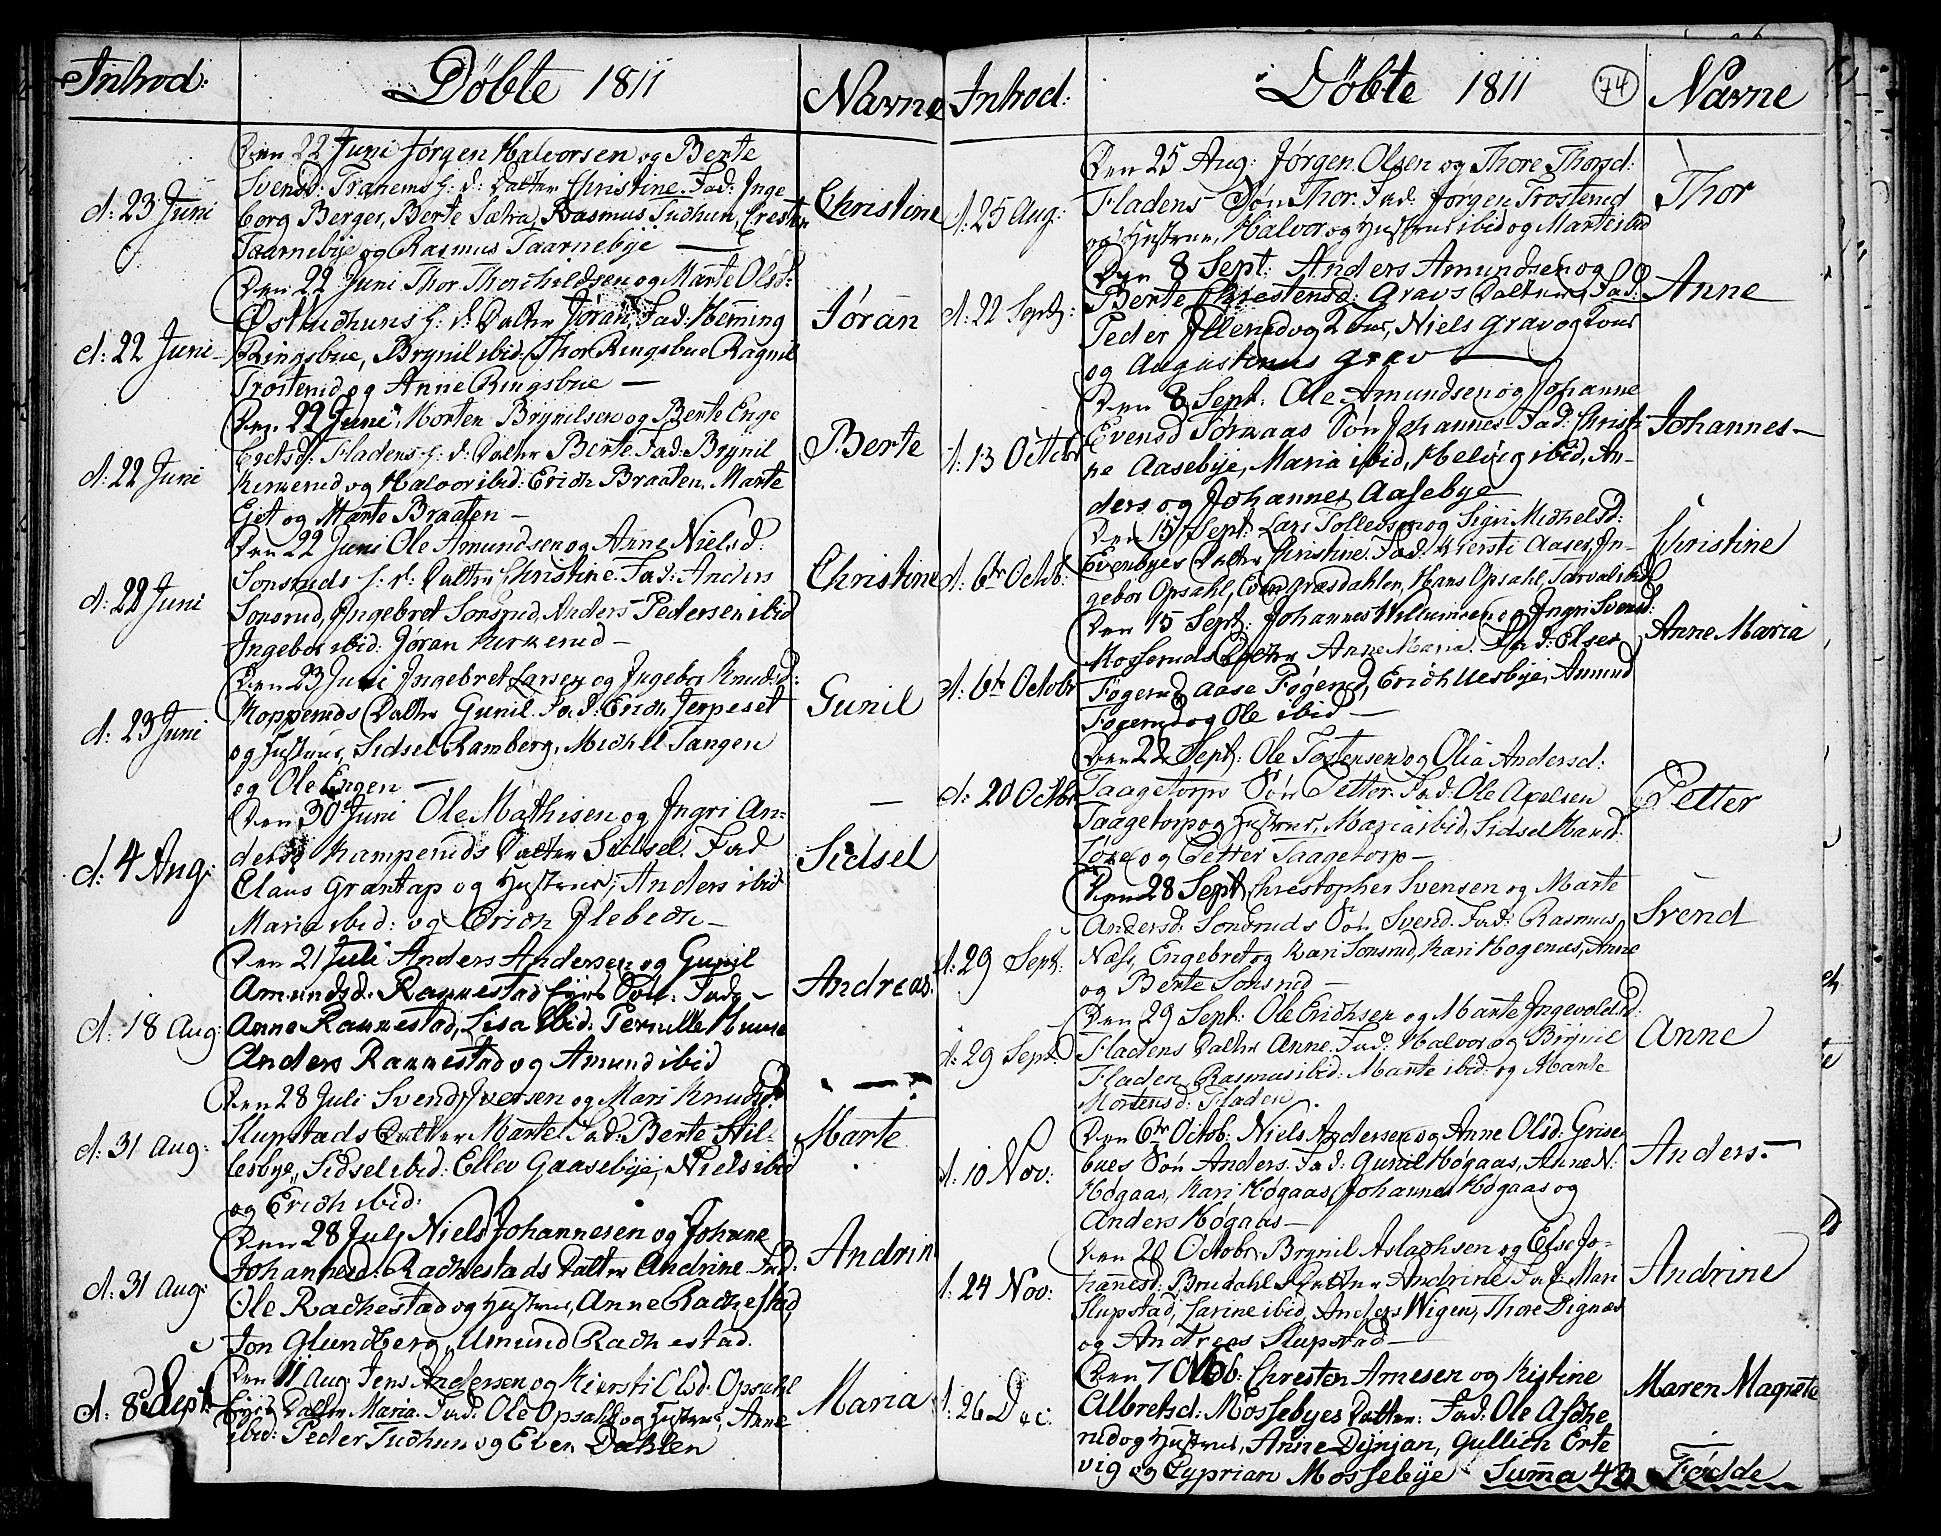 Introd:
Döbte 1811
Navne
d: 23 Juni
Den 22 Juni Jörgen Halvorsen og Berte
Svensd: Tranems h: d: Datter Christine. Fad: Inge
borg Berger, Berte Sætra, Rasmus Sudhun, Cresten
Taarnebÿe og Rasmus Taarnebÿe —
Christine
Den 22 Juni Thor Thorchildsen og Marte Olsd:
Östsudhuns h: d: Datter Jöran. Fad: Heming
d: 22 Juni
Ringsbue, Brynil ibid: Thor Ringsbue Ragnil
Trosterud og Anne Ringsbue —
Jöran
Den 22 Juni Morten Brynilsen og Berte Enge
bretsd: Fladens h: d: Datter Berte. Fad: Brynil
d: 22 Juni
Kirkerud og Halvor ibid: Erich Braaten. Marte
Ejet og Marte Braaten —
Berte
Den 22 Juni Ole Amundsen og Anne Nielsd:
Sonsruds h: d: Datter Christine. Fad: Anders
d: 22 Juni
Sonsrud, Ingebret Sonsrud, Anders Pedersen ibid
Ingebor ibid: Jöran Kirkerud —
Christine
Den 23 Juni Ingebret Larsen og Ingebor Knudsd:
Kopperuds Datter Gunil. Fad: Erich Jerpeset
d: 23 Juni
og Hustrue, Sidsel Ramberg, Michel Tangen
og Ole Engen —
Gunil
Den 30 Juni Ole Mathisen og Ingri An-
dersd: Kamperuds Datter Sidsel. Fad
d: 4 Aug:
Claus Grantap og Hustrue, Anders ibid
Maria ibid: og Erich Ilebech —
Sidsel
Den 21 Juli Anders Andersen og Gunil
Amundsd: Rannestad Ejes Sön: Fad: —
d: 18 Aug:
Anne Rannestad, Lisa ibid: Pernille Huuse
Anders Rannestad og Amund ibid
Andreas.
Den 28 Juli Svend Iversen og Mari Knudsd:
Slupstads Datter Marte. Fad: Berte Stil-
d: 31 Aug:
lesbye, Sidsel ibid: Ellev Gaasebÿe, Niels ibid
og Erich ibid:
Marte
Den 28 Juli Niels Johannesen og Johane
Johannesd: Rachestads Datter Andrine Fad:
d: 31 Aug:
Ole Rachestad og Hustrue, Anne Rachestad
Jon Glundberg, Amund Rachestad.
Andrin
Den 11 Aug: Jens Andersen og Kiersti Olsd: Opsahl
d: 8de Sept:
Ejes Datter Maria. Fad: Ole Opsahl og Hustrue, Anne
ibid: Peder Sudhun og Even Dahlen
Maria
Introd:
Döbte 1811
74
Navne
Den 25 Aug: Jörgen Olsen og Thore Thorsd:
d: 25 Aug:
Fladens Sön Thor. Fad: Jörgen Trosterud
og Hustrue, Halvor og Hustrue ibid og Marte ibid
Thor
Den 8 Sept: Anders Amundsen og
d: 22 Sept:
Berte Chrestensd: Gravs Datter Fad:
Peder Illerud og Zone, Niels Grav og Zone
og Augustinus Grav —
Anne
Den 8 Sept: Ole Amundsen og Johanne
Evensd Sörnaas Sön Johannes. Fad: Christi
d: 13 Octobr
ne Aasebÿe, Maria ibid, Helvig ibid, An-
ders og Johannes Aasebye
Johannes —
Den 15 Sept: Lars Tollevsen og Sigri Michelsd:
Evenbyes Datter Christine. Fad: Kiersti Aaser, In-
d: 6te Octob:
gebor Opsahl, Even Græsdahlen, Hans Opsahl, Sarval ibid
Christine
Den 15 Sept: Johannes Willumsen og Ingri Svensd:
Mosseruds Datter Anne Maria. Fad: Else
d: 6te Octobr
Fögerud, Aase Fögerud, Erich Wesbÿe, Amund
Fögerud og Ole ibid —
Anne Maria
Den 22 Sept: Ole Tostensen og Olia Andersd:
d: 20 Octbr
Taagetorps Sön Petter. Fad: Ole Axelsen
Taagetorp og Hustrue, Maria ibid, Sidsel Hansd:
Löxe og Petter Taagetorp —
Petter
Den 28 Sept: Chrestopher Svensen og Marte
Andersd: Sonsruds Sön Svend. Fad: Rasmus
d: 29 Sept:
Næss, Engebret og Kari Sonsrud, Kari Hogenæs, Anne
og Berte Sonsrud —
Svend
Den 29 Sept: Ole Erichsen og Marte Ingevoldsd:
d: 29 Sept:
Fladens Datter Anne. Fad: Halvor og Brynil
Fladen, Rasmus ibid: Marte ibid: og Marte
Mortensd: Fladen.
Anne
Den 6te Octob: Niels Andersen og Anne Olsd: Grise-
bues Sön Anders. Fad: Gunil Högaas, Anne N:
d: 10 Nov:
Högaas, Kari Högaas, Johannes Högaas og
Anders Högaas —
Anders —
Den 20 Octobr: Brynil Aslachsen og Else Jo-
hannesd: Brudahls Datter Andrine. Fad: Mari
d: 24 Nov:
Slupstad, Sarine ibid, Anders Wigen, Thore Dignæs
og Andreas Slupstad —
Andrine
Den 7 Octob: Chresten Arnesen og Kistine
d: 26 Dec:
Albretsd: Mossebyes Datter: Fad: Ole Asche
rud og Hustrue, Anne Dynjan, Gullich Erte
vig og Cyprian Mossebÿe
Maren Magrete
Summa 43 Födde